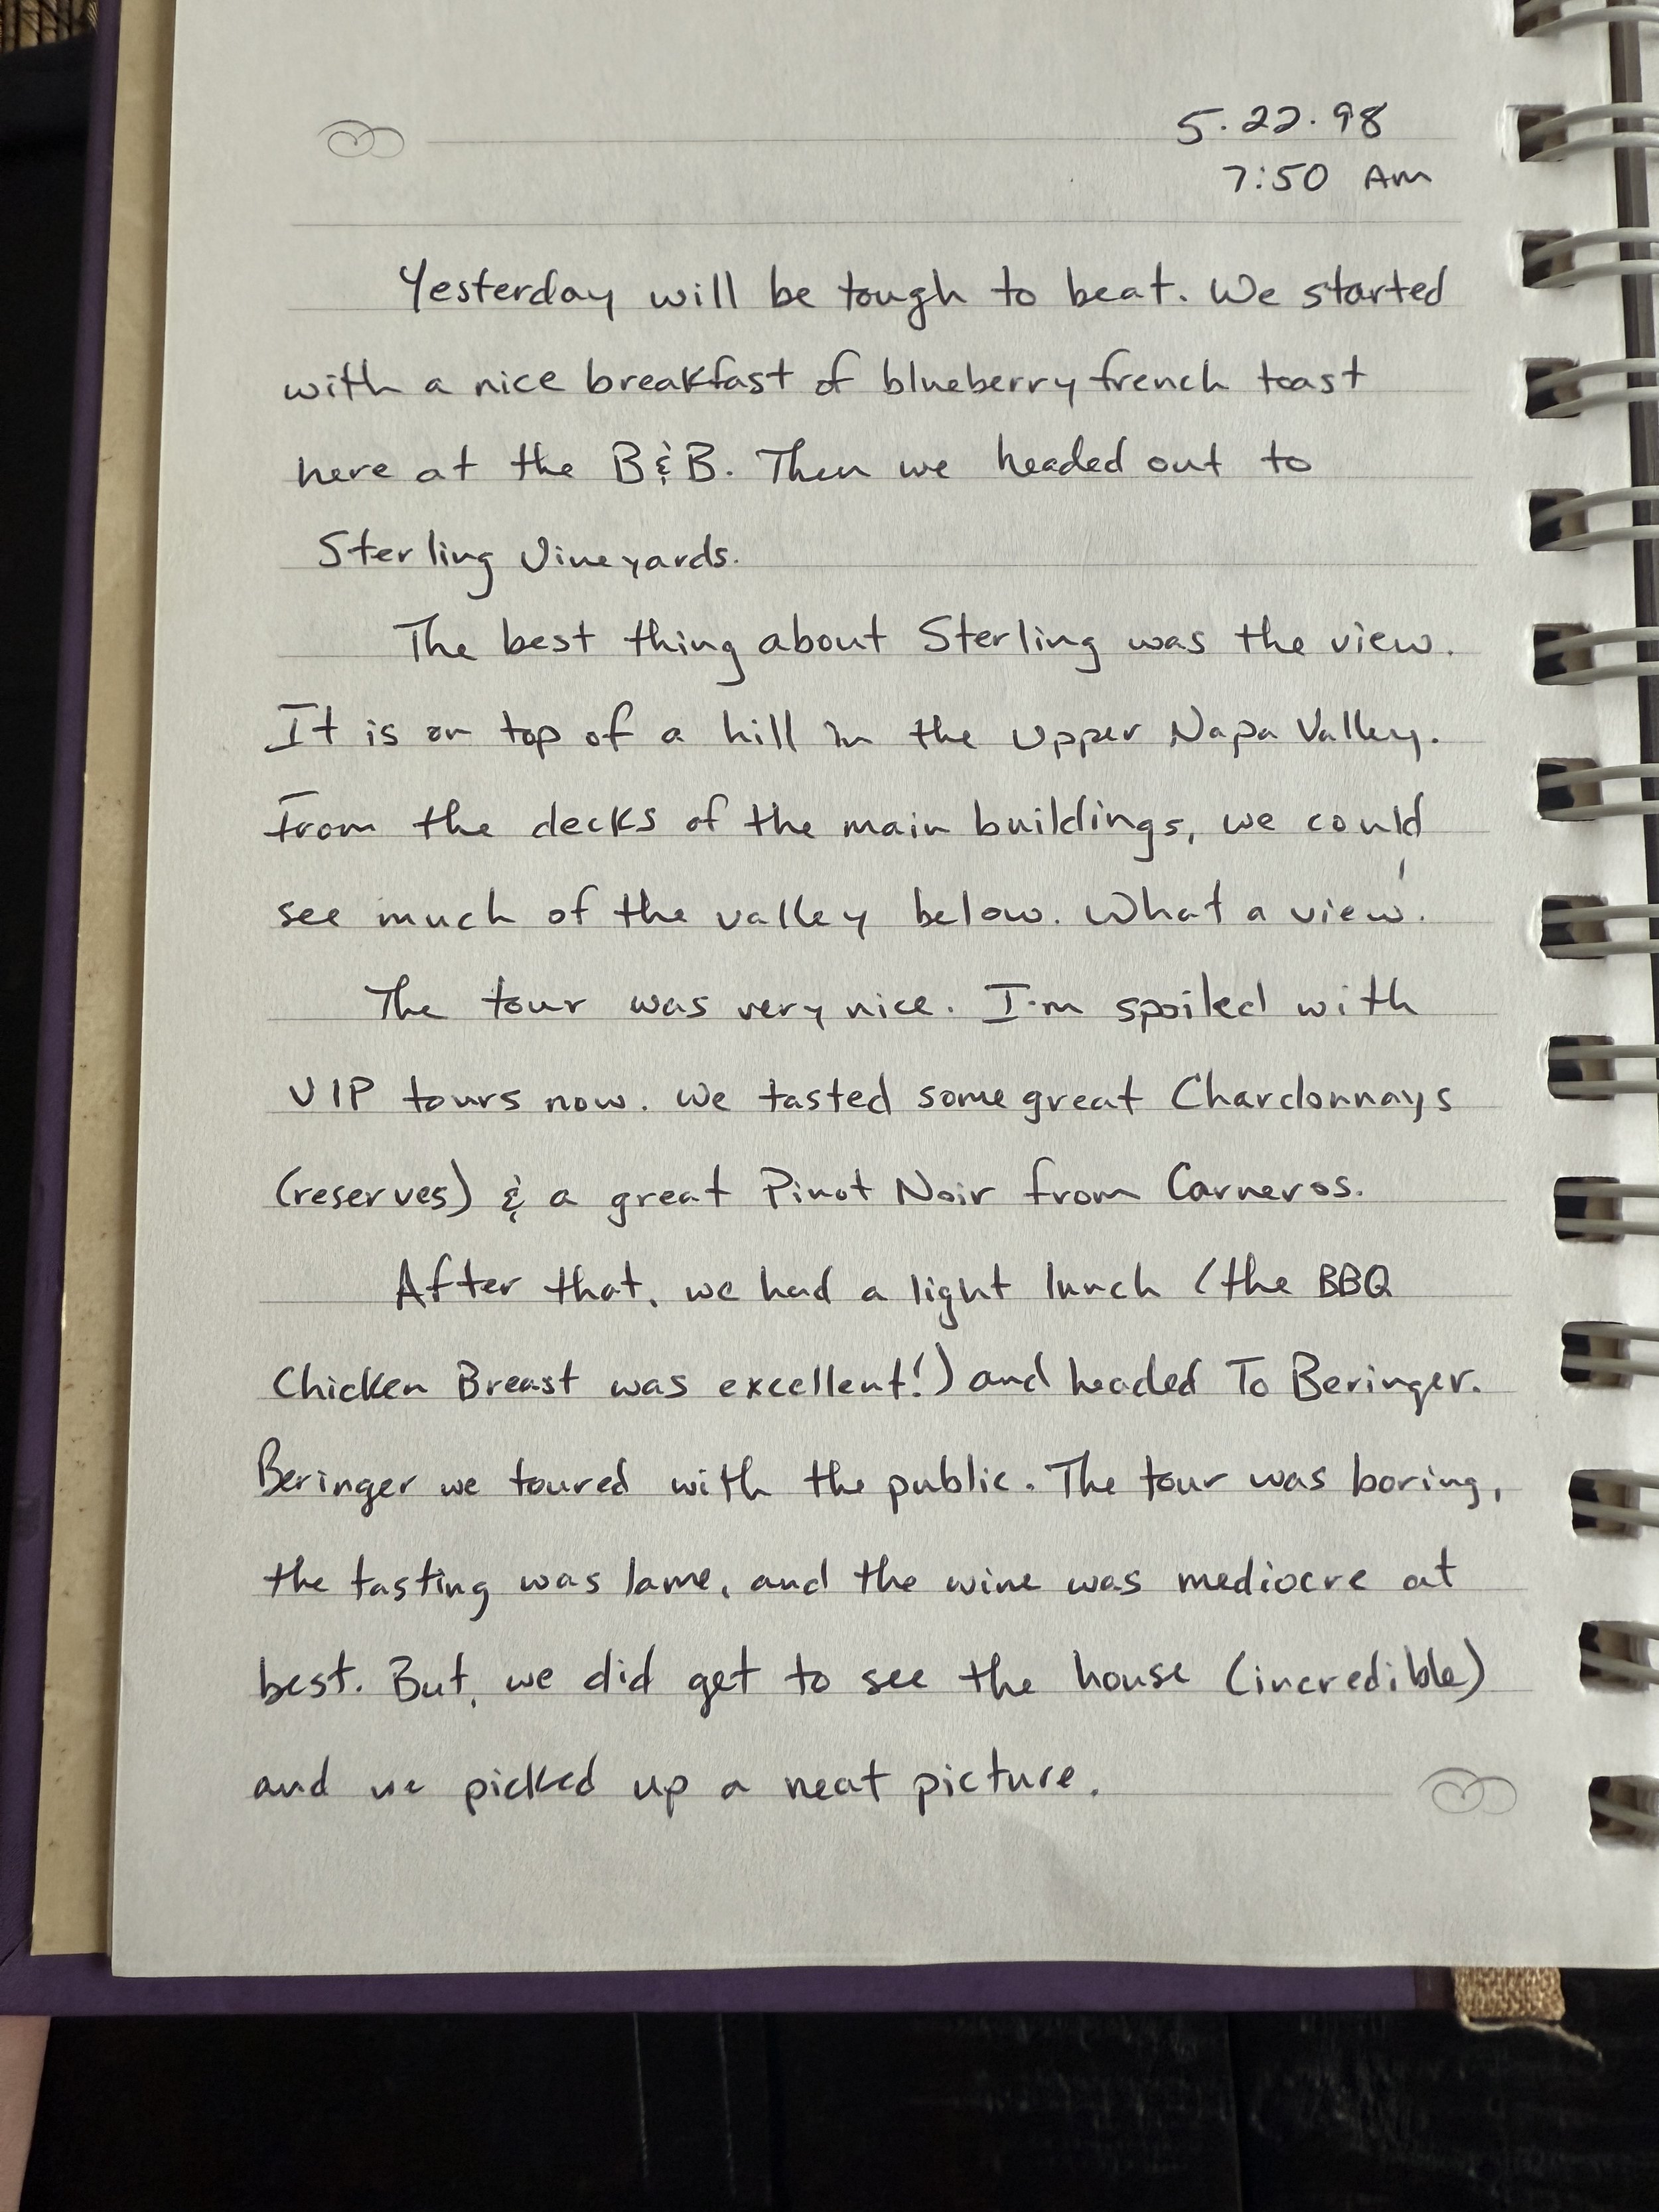 5.22.98
7:50 AM
Yesterday will be tough to beat. We started
with a nice breakfast of blueberry french toast
here at the B&B. Then we headed out to
Sterling Vineyards.
The best thing about Sterling was the view.
It is on top of a hill in the Upper Napa Valley.
From the decks of the main buildings, we could
see much of the valley below. What a view!
The tour was very nice. I'm spoiled with
VIP tours now. We tasted some great Chardonnays
(reserves) & a great Pinot Noir from Carneros.
After that, we had a light lunch (the BBQ
Chicken Breast was excellent!) and headed To Beringer.
Beringer we toured with the public. The tour was boring,
the tasting was lame, and the wine was mediocre at
best. But, we did get to see the house (incredible)
and we picked up a neat picture.